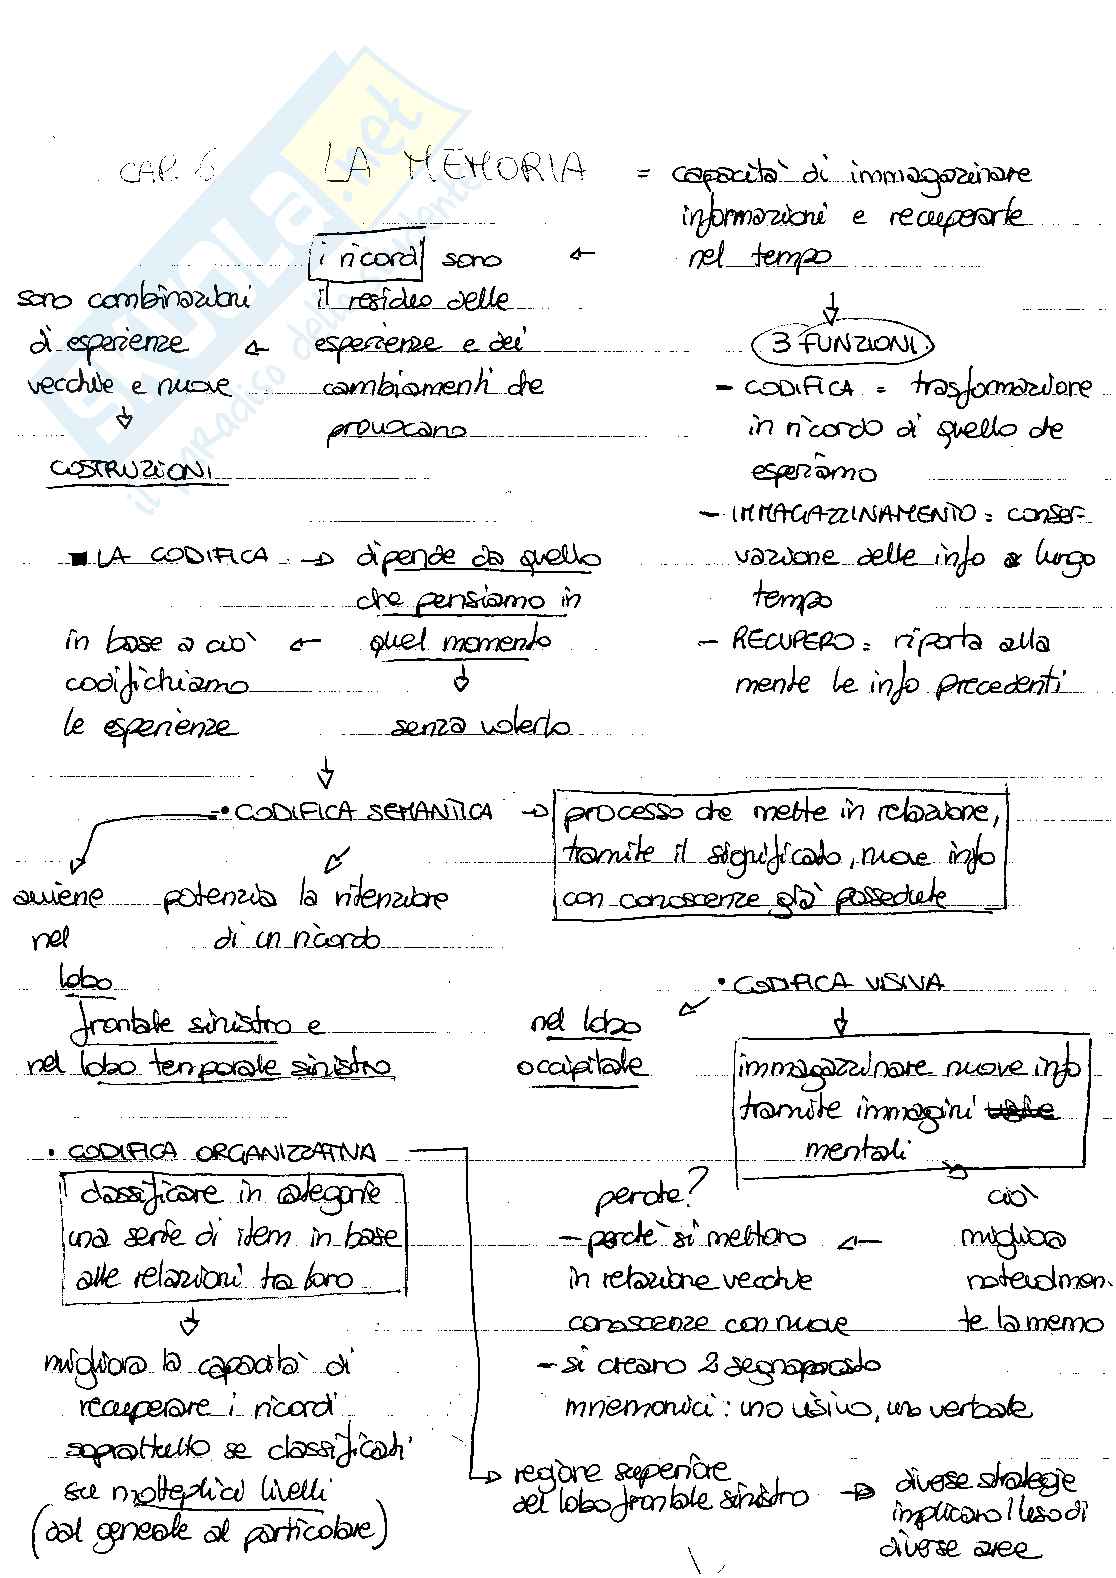 CAP. 6 LA MEMORIA = capacità di immagazzinare
informazioni e recuperarle
nel tempo
i ricordi sono
il residuo delle
esperienze e dei
cambiamenti che
provocano
sono combinazioni
di esperienze
vecchie e nuove
COSTRUZIONI
3 FUNZIONI
- CODIFICA = trasformazione
in ricordo di quello che
esperiamo
- IMMAGAZZINAMENTO = conser-
vazione delle info a lungo
tempo
- RECUPERO = riporta alla
mente le info precedenti
LA CODIFICA → dipende da quello
che pensiamo in
quel momento
senza volerlo
in base a ciò
codifichiamo
le esperienze
• CODIFICA SEMANTICA → processo che mette in relazione,
tramite il significato, nuove info
con conoscenze già possedute
avviene
nel
lobo
frontale sinistro e
nel lobo temporale sinistro
potenzia la ritenzione
di un ricordo
• CODIFICA VISIVA
nel lobo
occipitale
immagazzinare nuove info
tramite immagini
mentali
ciò
migliora
notevolmen.
te la memo
perché?
- perché si mettono
in relazione vecchie
conoscenze con nuove
- si creano 2 segnaposto
mnemonici: uno visivo, uno verbale
• CODIFICA ORGANIZZATIVA
classificare in categorie
una serie di item in base
alle relazioni tra loro
migliora la capacità di
recuperare i ricordi
soprattutto se classificati
su molteplici livelli
(dal generale al particolare)
regione superiore
del lobo frontale sinistro → diverse strategie
implicano l'uso di
diverse aree
SKUOLA.net
il paradiso dello studente